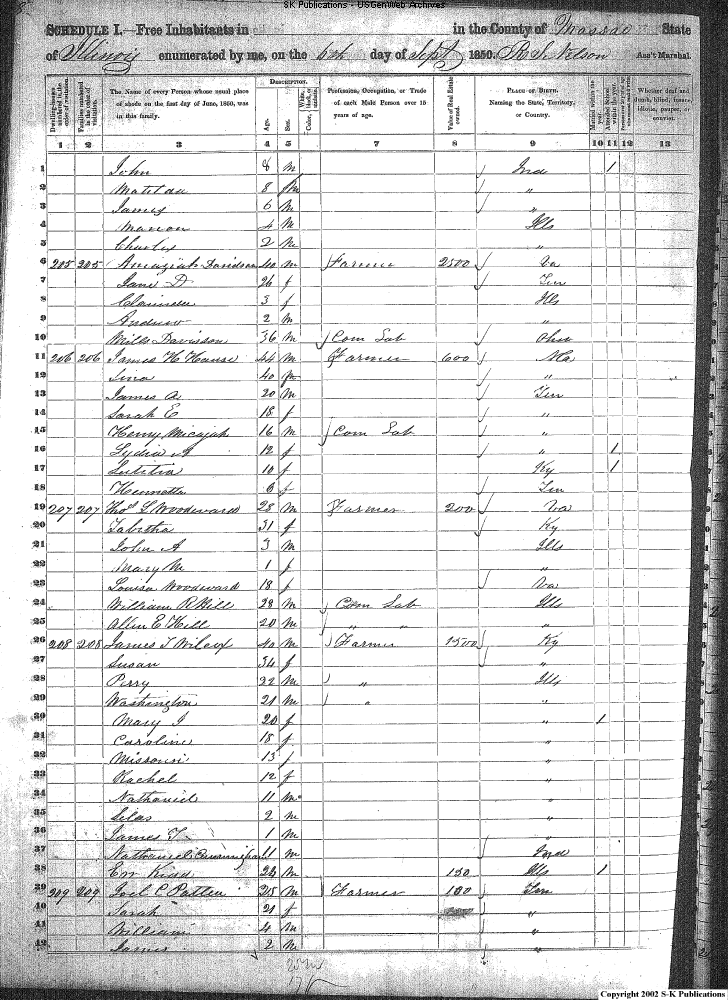 SK Publications - USGenWeb Archives
SCHEDULE I.—Free Inhabitants in in the County of Massac State
of Illinois enumerated by me, on the 6th day of Sept 1850. R. S. Nelson Ass't Marshal.
Dwelling-houses numbered in the order of visitation.
Families numbered in the order of visitation.
The Name of every Person whose usual place of abode on the first day of June, 1850, was in this family.
DESCRIPTION.
Age.
Sex.
Color,
Profession, Occupation, or Trade of each Male Person over 15 years of age.
Value of Real Estate owned.
PLACE OF BIRTH. Naming the State, Territory, or Country.
Married within the year.
Whether deaf and dumb, blind, insane, idiotic, pauper, or convict.
1 2 3 4 5 6 7 8 9 10 11 12 13
1 John 8 m Ind 1
2 Matilda 8 "
3 James 6 m "
4 Marion 4 m Ills
5 Charles 2 m "
6 205 205 Amaziah Davidson 40 m Farmer 2500 Va
7 Jane D 26 f Ten
8 3 f Ills
9 Andrew 2 m "
10 Davisson 36 m Com Lab Ohio
11 206 206 James H Hause 44 m Farmer 600
12 40 "
13 James A 20 m Ten
14 Sarah E 18 f "
15 Henry Micajah 16 m Com Lab "
16 Lydia 12 f " 1
17 Lutitia 10 f Ky 1
18 6 f Ten
19 207 207 Thos L Woodward 28 m Farmer 200 Va
20 Tabitha 31 f Ky
21 John A 3 m Ills
22 Mary M 1 f "
23 Louisa Woodward 18 f Va
24 William R Hill 28 m Com Lab Ills
25 Allen E Hill 20 m " " "
26 208 208 James T Wilcox 40 m Farmer 1500 Ky
27 Susan 34 f "
28 Perry 22 m " Ills
29 Washington 21 m " "
30 Mary J 20 f " 1
31 Caroline 18 f "
32 Missouri 13 f "
33 Rachel 12 f "
34 Nathaniel 11 m "
35 Silas 2 m "
36 James T 1 m "
37 Nathaniel Cunningham 11 m Ind
38 Kidd 24 m 150 Ills 1
39 209 209 Joel C Patten 25 m Farmer 100 Ten
40 Sarah 21 f "
41 William 4 m "
42 James 2 m "
Copyright 2002 S-K Publications